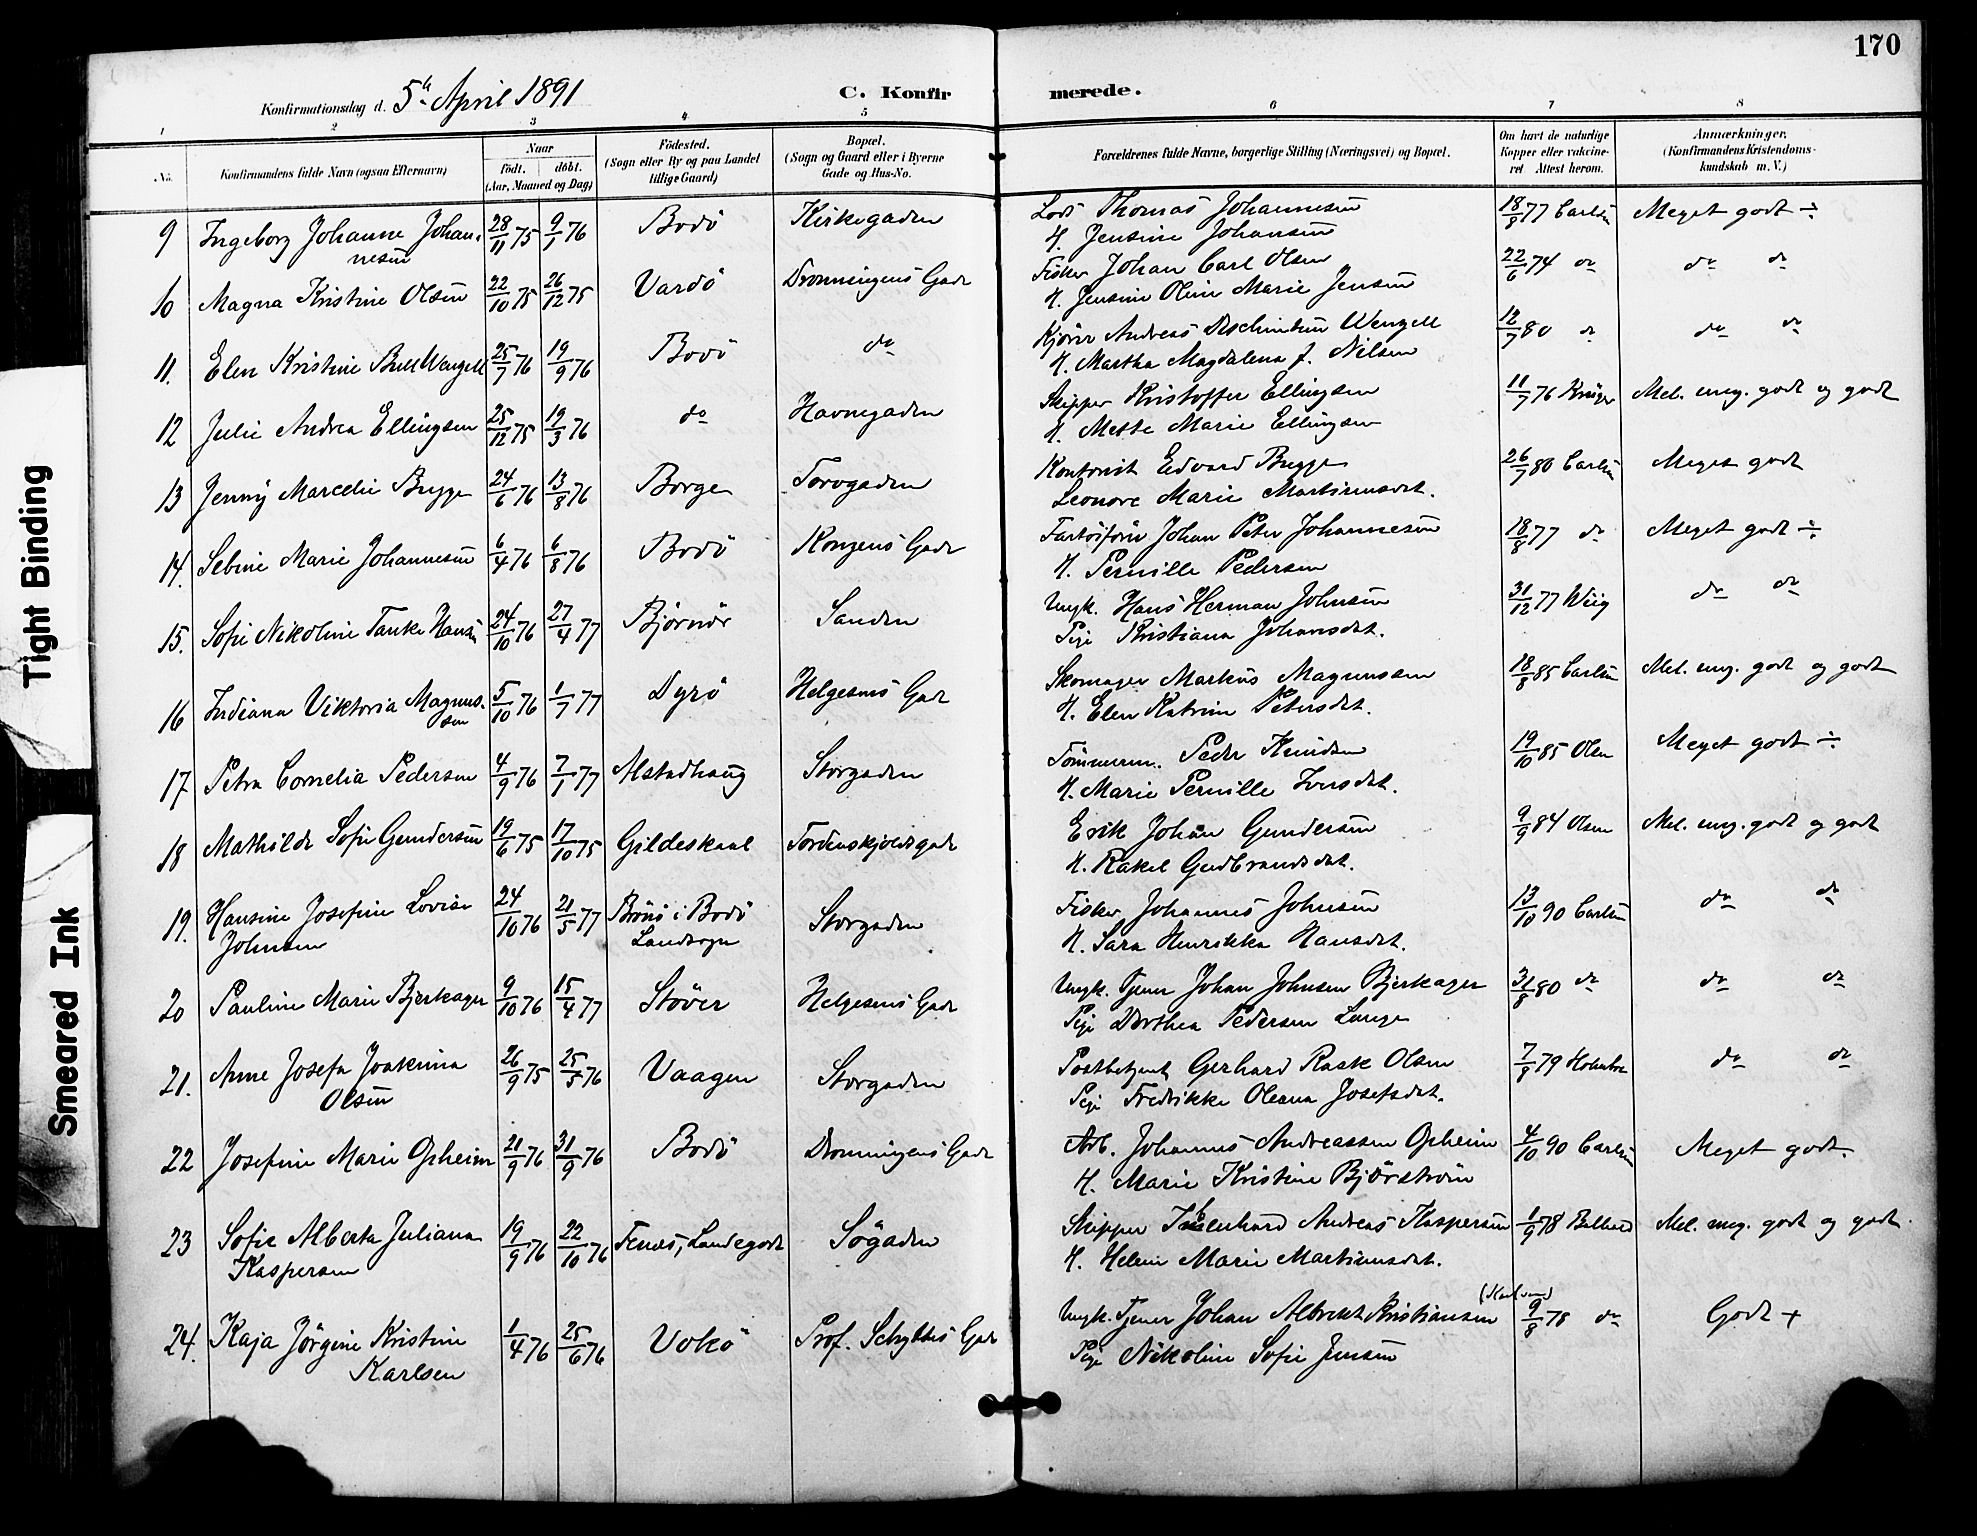 170
Konfirmationsdag d. 5te April 1891
C. Konfirmerede.
1 2 3 4 5 6 7 8
No.
Konfirmandens fulde Navn (ogsaa Efternavn)
Naar
født. døbt.
(Aar, Maaned og Dag)
Fødested.
(Sogn eller By og paa Landet
tillige Gaard)
Bopæl.
(Sogn og Gaard eller i Byerne
Gade og Hus-No.
Forældrenes fulde Navne, borgerlige Stilling (Næringsvei) og Bopæl.
Om havt de naturlige
Kopper eller vakcine-
ret Attest herom.
Anmærkninger.
(Konfirmandens Kristendoms-
kundskab m. V.)
9 Ingeborg Johanne Johan- 28/11 75 9/1 76 Bodö Kirkegaden Lods Thomas Johannesen 18/8 77 Carlsen Meget godt ÷
nesen H. Jensine Johansen
10 Magna Kristine Olsen 22/10 75 26/12 75 Vardö Dronningens Gade Fisker Johan Carl Olsen 22/6 74 do do do
H. Jensine Oline Marie Jensen
11. Elen Kristine Bull Wengell 25/7 76 19/9 76 Bodö do Andreas Wengell 12/7 80 do do do
H. Martha Magdalena f. Nilsen
12 Julie Andrea Ellingsen 25/12 75 19/3 76 do Havnegaden Skipper Kristoffer Ellingsen 11/7 76 Krüger Mel. meg. godt og godt
H. Mette Marie Ellingsen
13 Jenny Marcelie Brygge 24/6 76 13/8 76 Borge Torvgaden Kontorist Edvard Brygge 26/7 80 Carlsen Meget godt
Leonore Marie Martinusdat.
14. Sebine Marie Johannesen 6/4 76 6/8 76 Bodö Kongens Gade Fartöiförer Johan Peter Johannesen 18/8 77 do Meget godt ÷
H. Pernille Pedersen
15. Sofie Nikoline Tanke Hansen 24/10 76 27/4 77 Björnör Sanden Ungk. Hans Herman Johnsen 31/12 77 Wiig do do
Pige Kristiana Johansdat.
16 Indiana Viktoria Magnus- 5/10 76 1/7 77 Dyrö Helgesens Gade Skomager Markus Magnussen 18/8 85 Carlsen Mel. meg. godt og godt
sen H. Elen Katrine Petersdat.
17 Petra Cornelia Pedersen 4/9 76 7/1 77 Alstadhaug Storgaden Tömmerm. Peder Knudsen 19/10 85 Olsen Meget godt ÷
H. Marie Pernille Iversdat.
18 Mathilde Sofie Gundersen 19/6 75 17/10 75 Gildeskaal Tordenskjoldsgade Erik Johan Gundersen 9/9 84 Olsen Mel. meg. godt og godt
H. Rakel Gudbrandsdat.
19. Hansine Josefine Lovise 24/10 76 21/5 77 Brönö i Bodö Storgaden Fisker Johannes Johnsen 13/10 90 Carlsen do do
Johnsen Landsogn H. Sara Henrikka Hansdat.
20 Pauline Marie Bjerkager 9/10 76 15/4 77 Stöver Helgesens Gade Ungk. Tjener Johan Johnsen Bjerkager 31/8 80 do do do
Pige Dorthea Pedersen Lange
21. Anne Josefa Joakima 26/9 75 25/5 76 Vaagen Storgaden Postbetjent Gerhard Rask Olsen 7/8 79 do do
Olsen Pige Fredrikke Oleana Josefsdat.
22 Josefine Marie Opheim 21/9 76 31/9 76 Bodö Dronningens Gade Arb. Johannes Andreassen Opheim 4/10 90 Carlsen Meget godt.
H. Marie Kristine Björström
23 Sofie Alberta Juliana 19/9 76 22/10 76 Fenes, Landegode Sögaden Skipper Andreas Kaspersen 1/9 78 Mel. meg. godt og godt.
Kaspersen H. Heline Marie Martinusdat.
(Karlsen)
24. Kaja Jörgine Kristine 1/4 76 25/6 76 Vokö Prof. Schyttes Gade Ungk. Tjener Johan Albrekt Kristiansen 9/8 78 do Godt +
Karlsen Pige Nikoline Sofie Jensen
Tight Binding
Smeared Ink